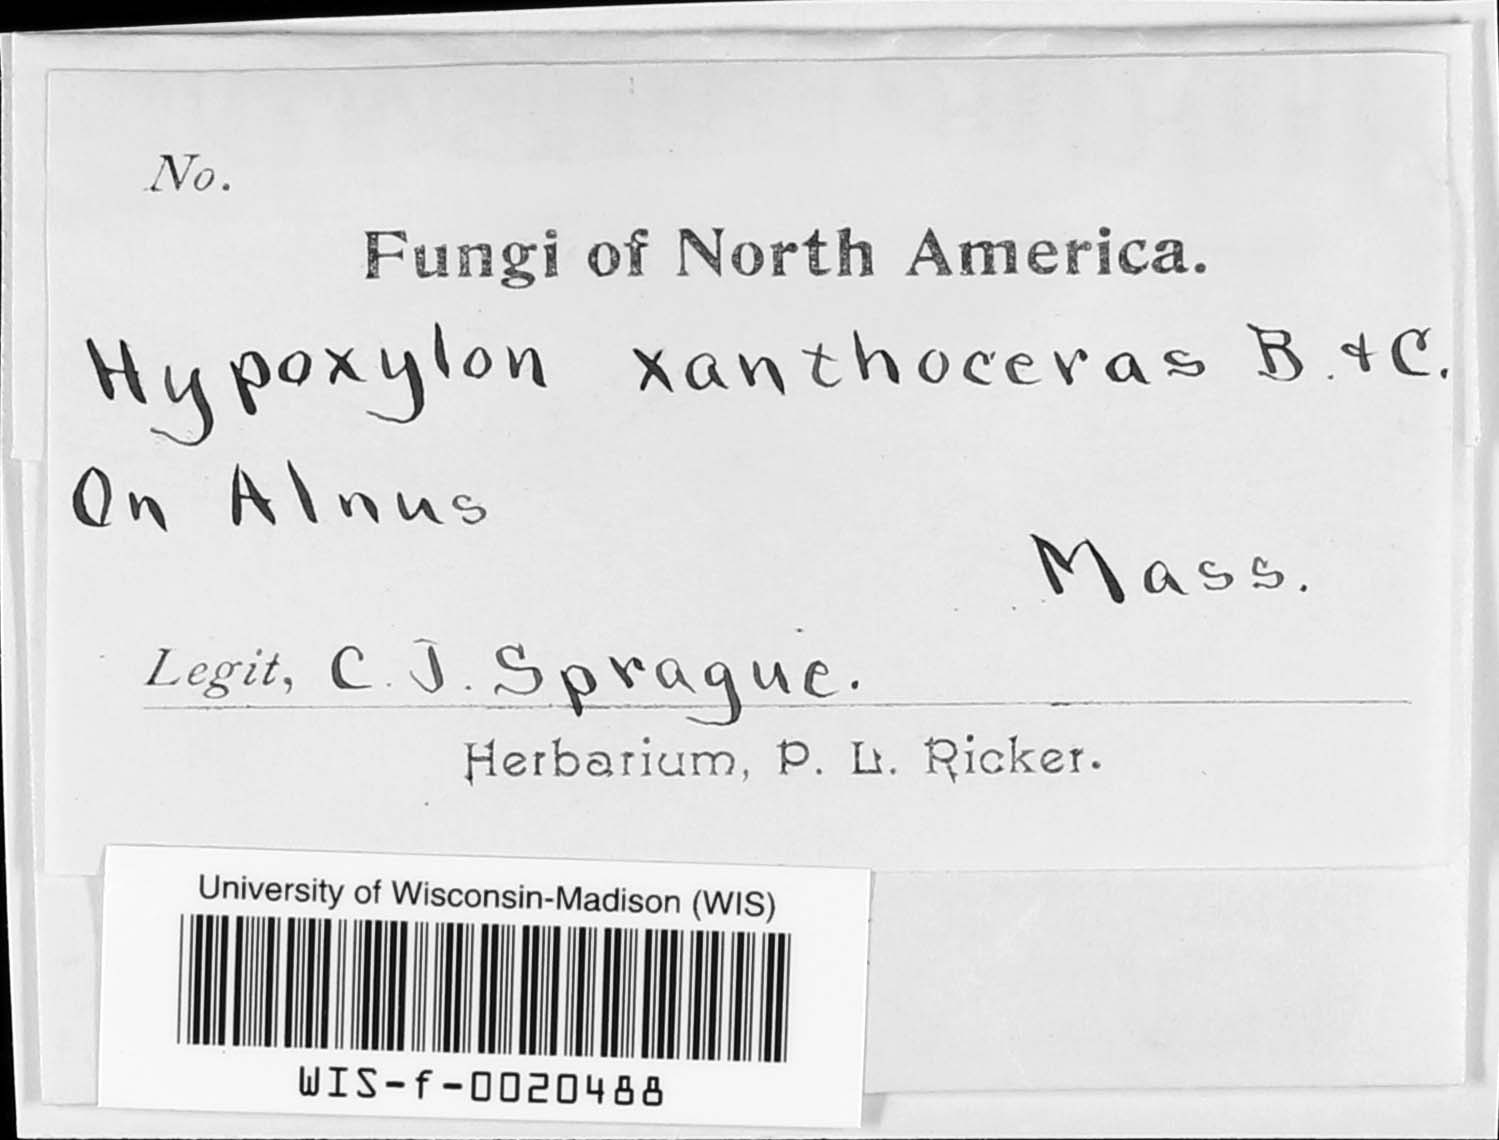 No.
Fungi of North America.
Hypoxylon xanthoceras B. & C.
On Alnus
Mass.
Legit, C. J. Sprague.
Herbarium, P. L. Ricker.
University of Wisconsin-Madison (WIS)
WIS-f-0020488